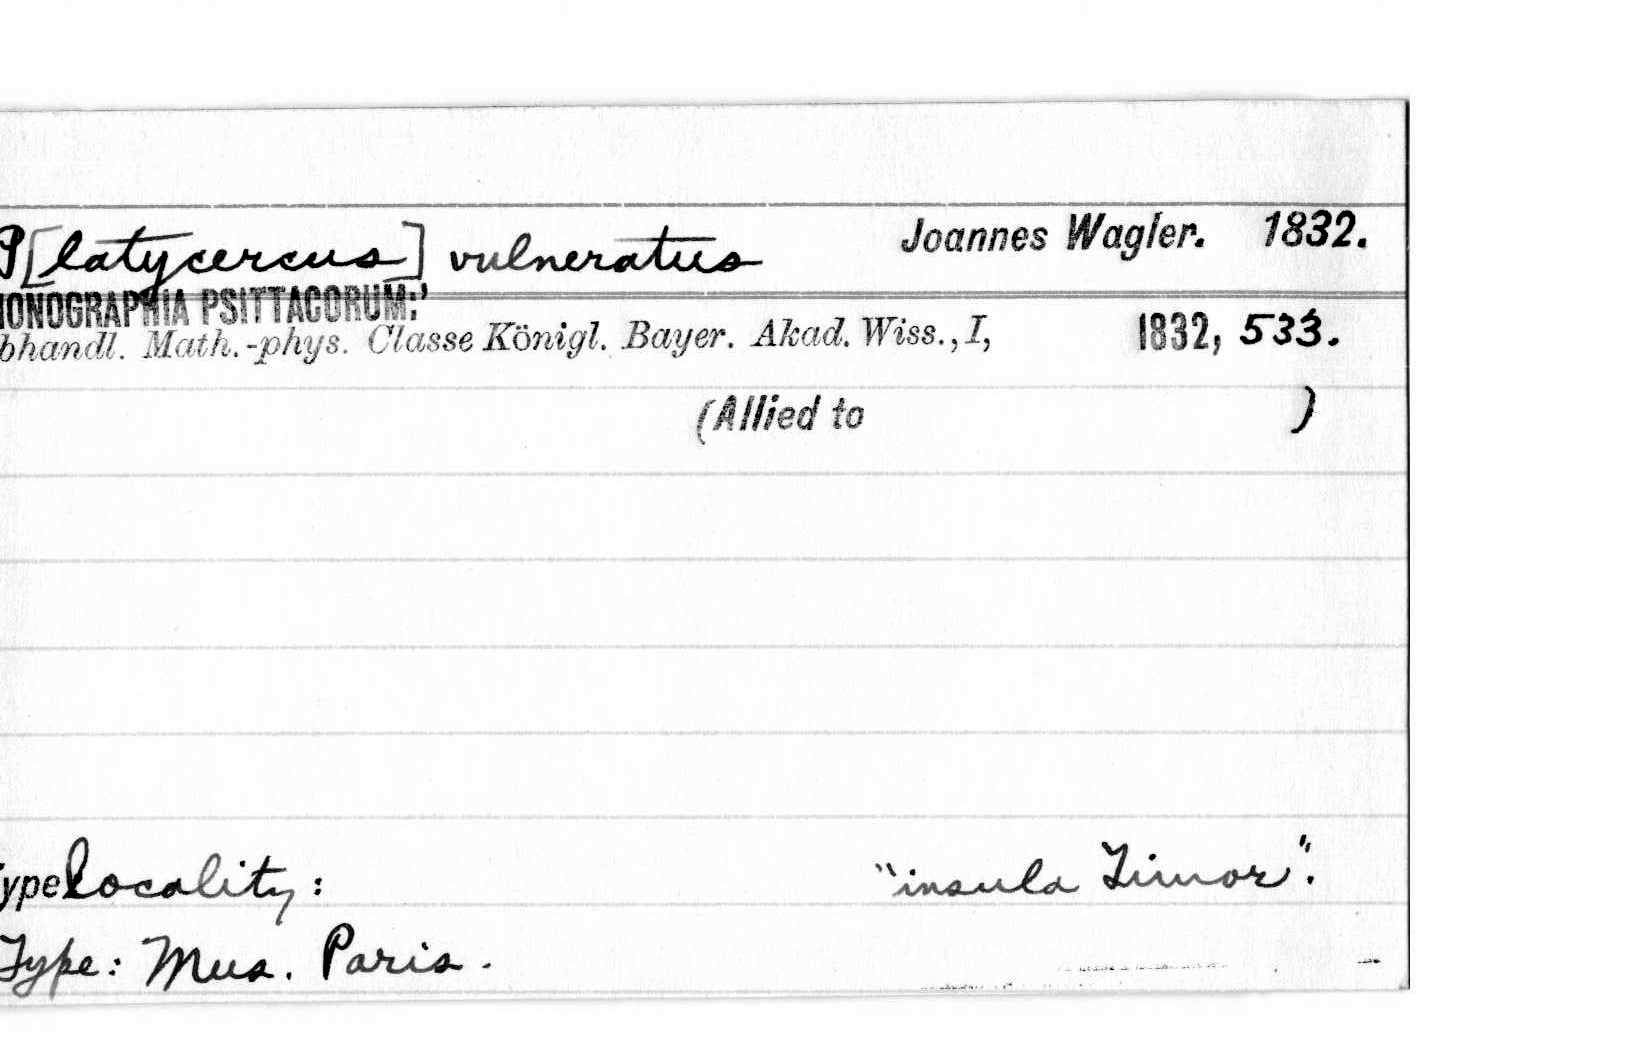 P[latycercus] vulneratus Joannes Wagler. 1832.
IONOGRAPHIA PSITTACORUM:'
bhandl. Math.-phys. Classe Königl. Bayer. Akad. Wiss., I, 1832, 533.
(Allied to )
ype locality: "insula Timor".
Type: Mus. Paris.